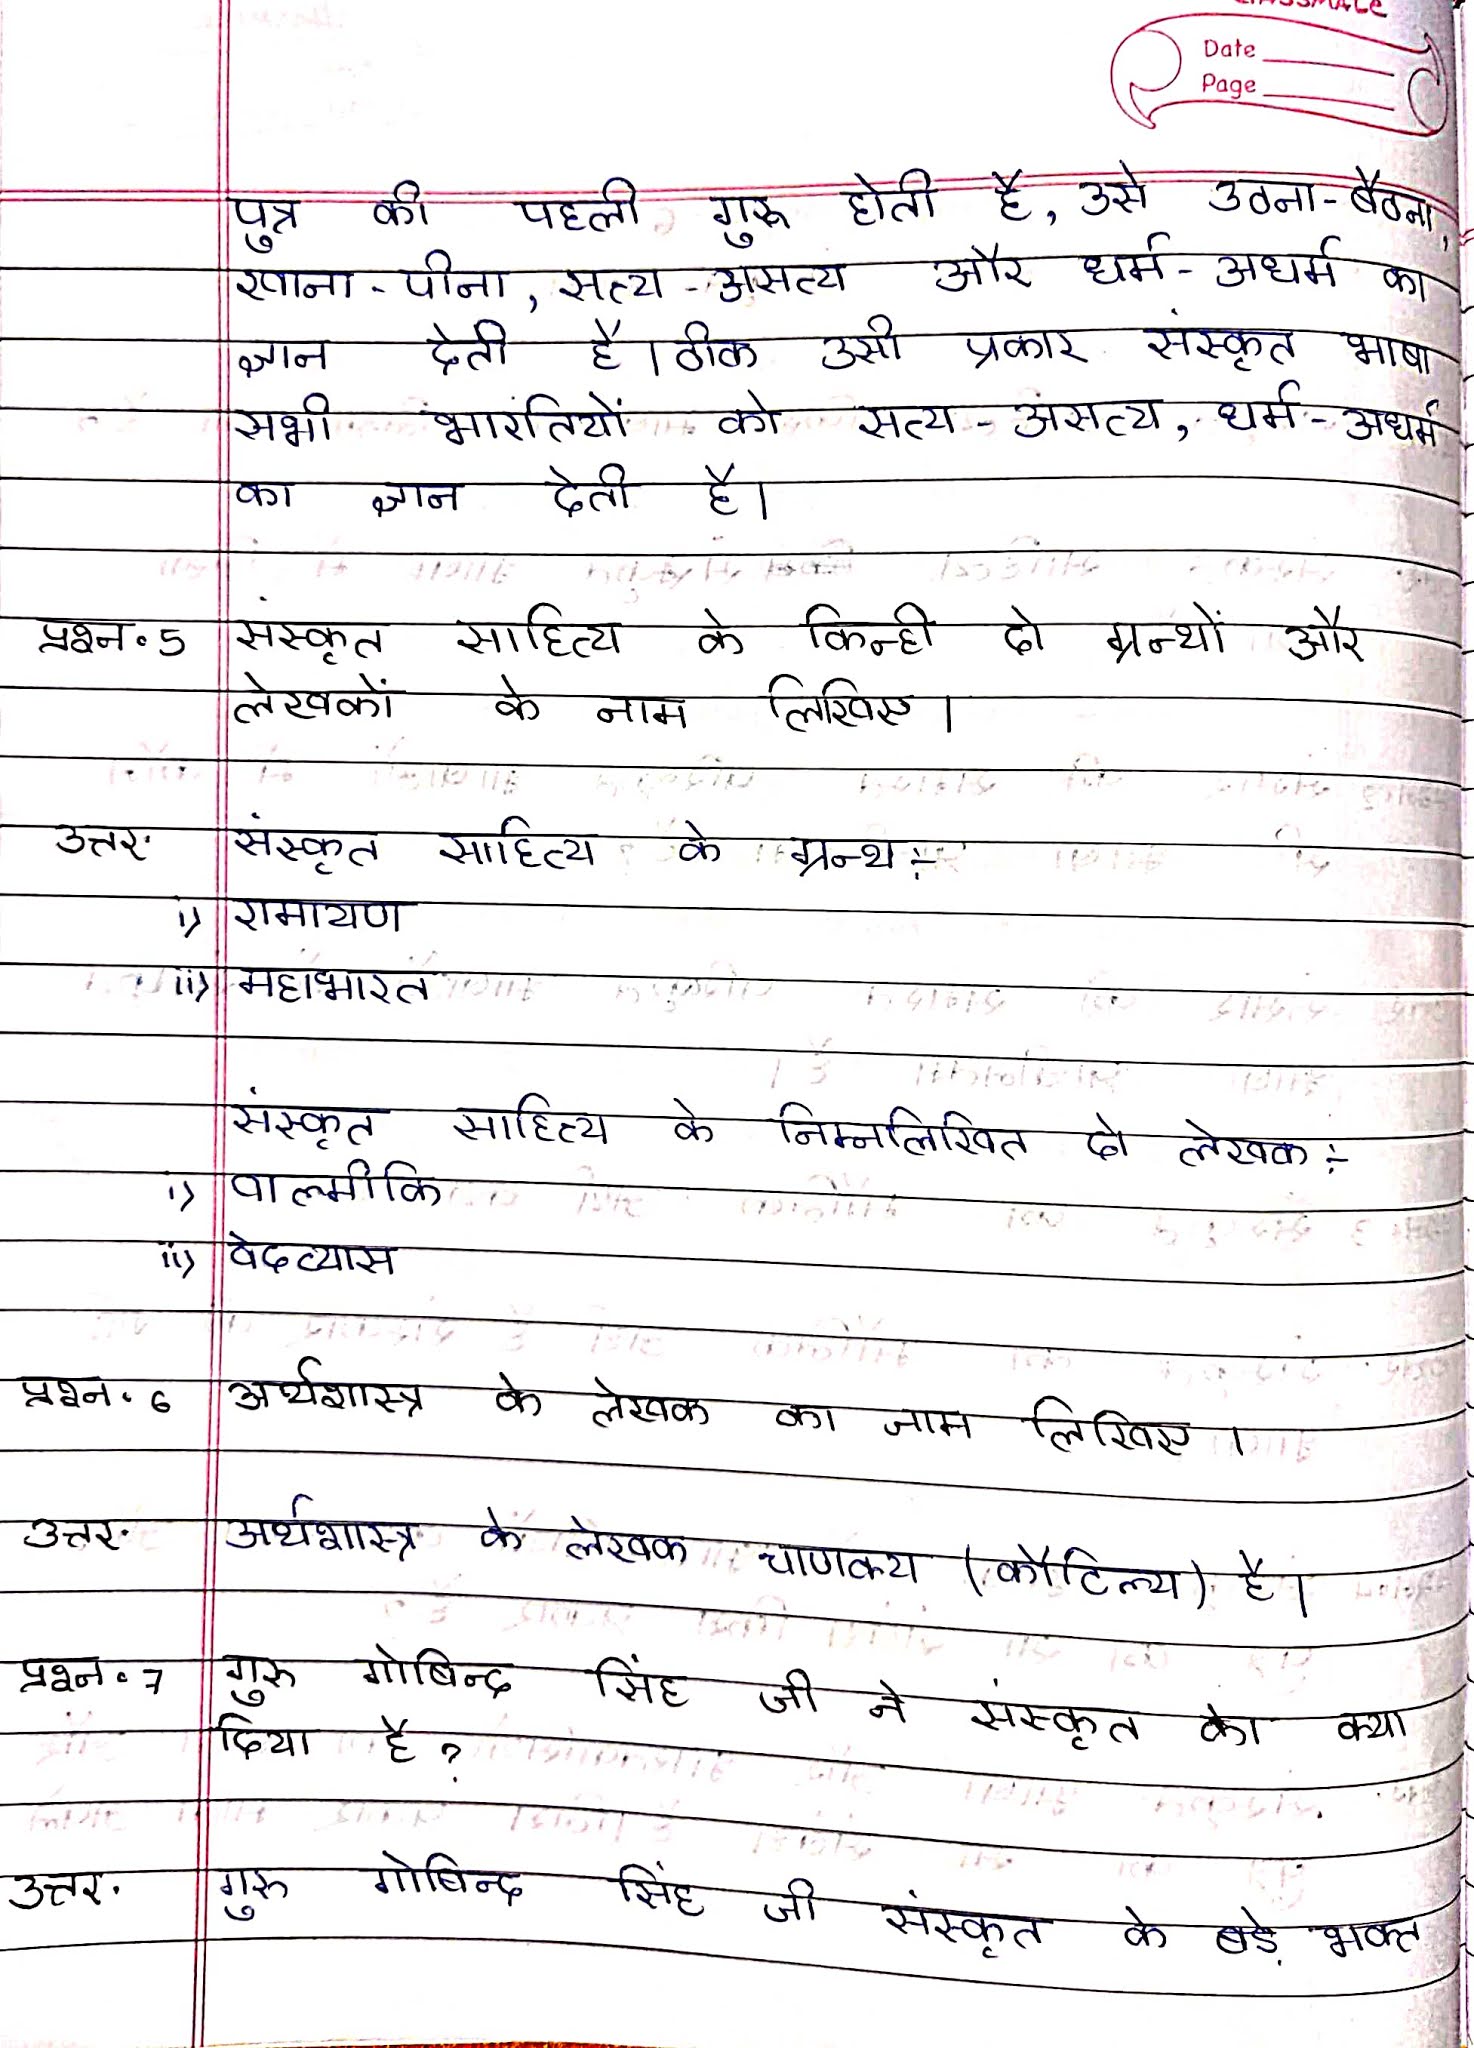 classmate
Date
Page
पुत्र की पहली गुरू होती है, उसे उठना-बैठना,
खाना-पीना, सत्य-असत्य और धर्म-अधर्म का
ज्ञान देती है। ठीक उसी प्रकार संस्कृत भाषा
सभी भारतियों को सत्य-असत्य, धर्म-अधर्म
का ज्ञान देती है।
प्रश्न.5 संस्कृत साहित्य के किन्ही दो ग्रन्थों और
लेखकों के नाम लिखिए।
उत्तर. संस्कृत साहित्य के ग्रन्थ :-
i) रामायण
ii) महाभारत
संस्कृत साहित्य के निम्नलिखित दो लेखक :-
i) वाल्मीकि
ii) वेदव्यास
प्रश्न.6 अर्थशास्त्र के लेखक का नाम लिखिए।
उत्तर. अर्थशास्त्र के लेखक चाणक्य (कौटिल्य) है।
प्रश्न.7 गुरु गोबिन्द सिंह जी ने संस्कृत को क्या
दिया है?
उत्तर. गुरु गोबिन्द सिंह जी संस्कृत के बड़े भक्त